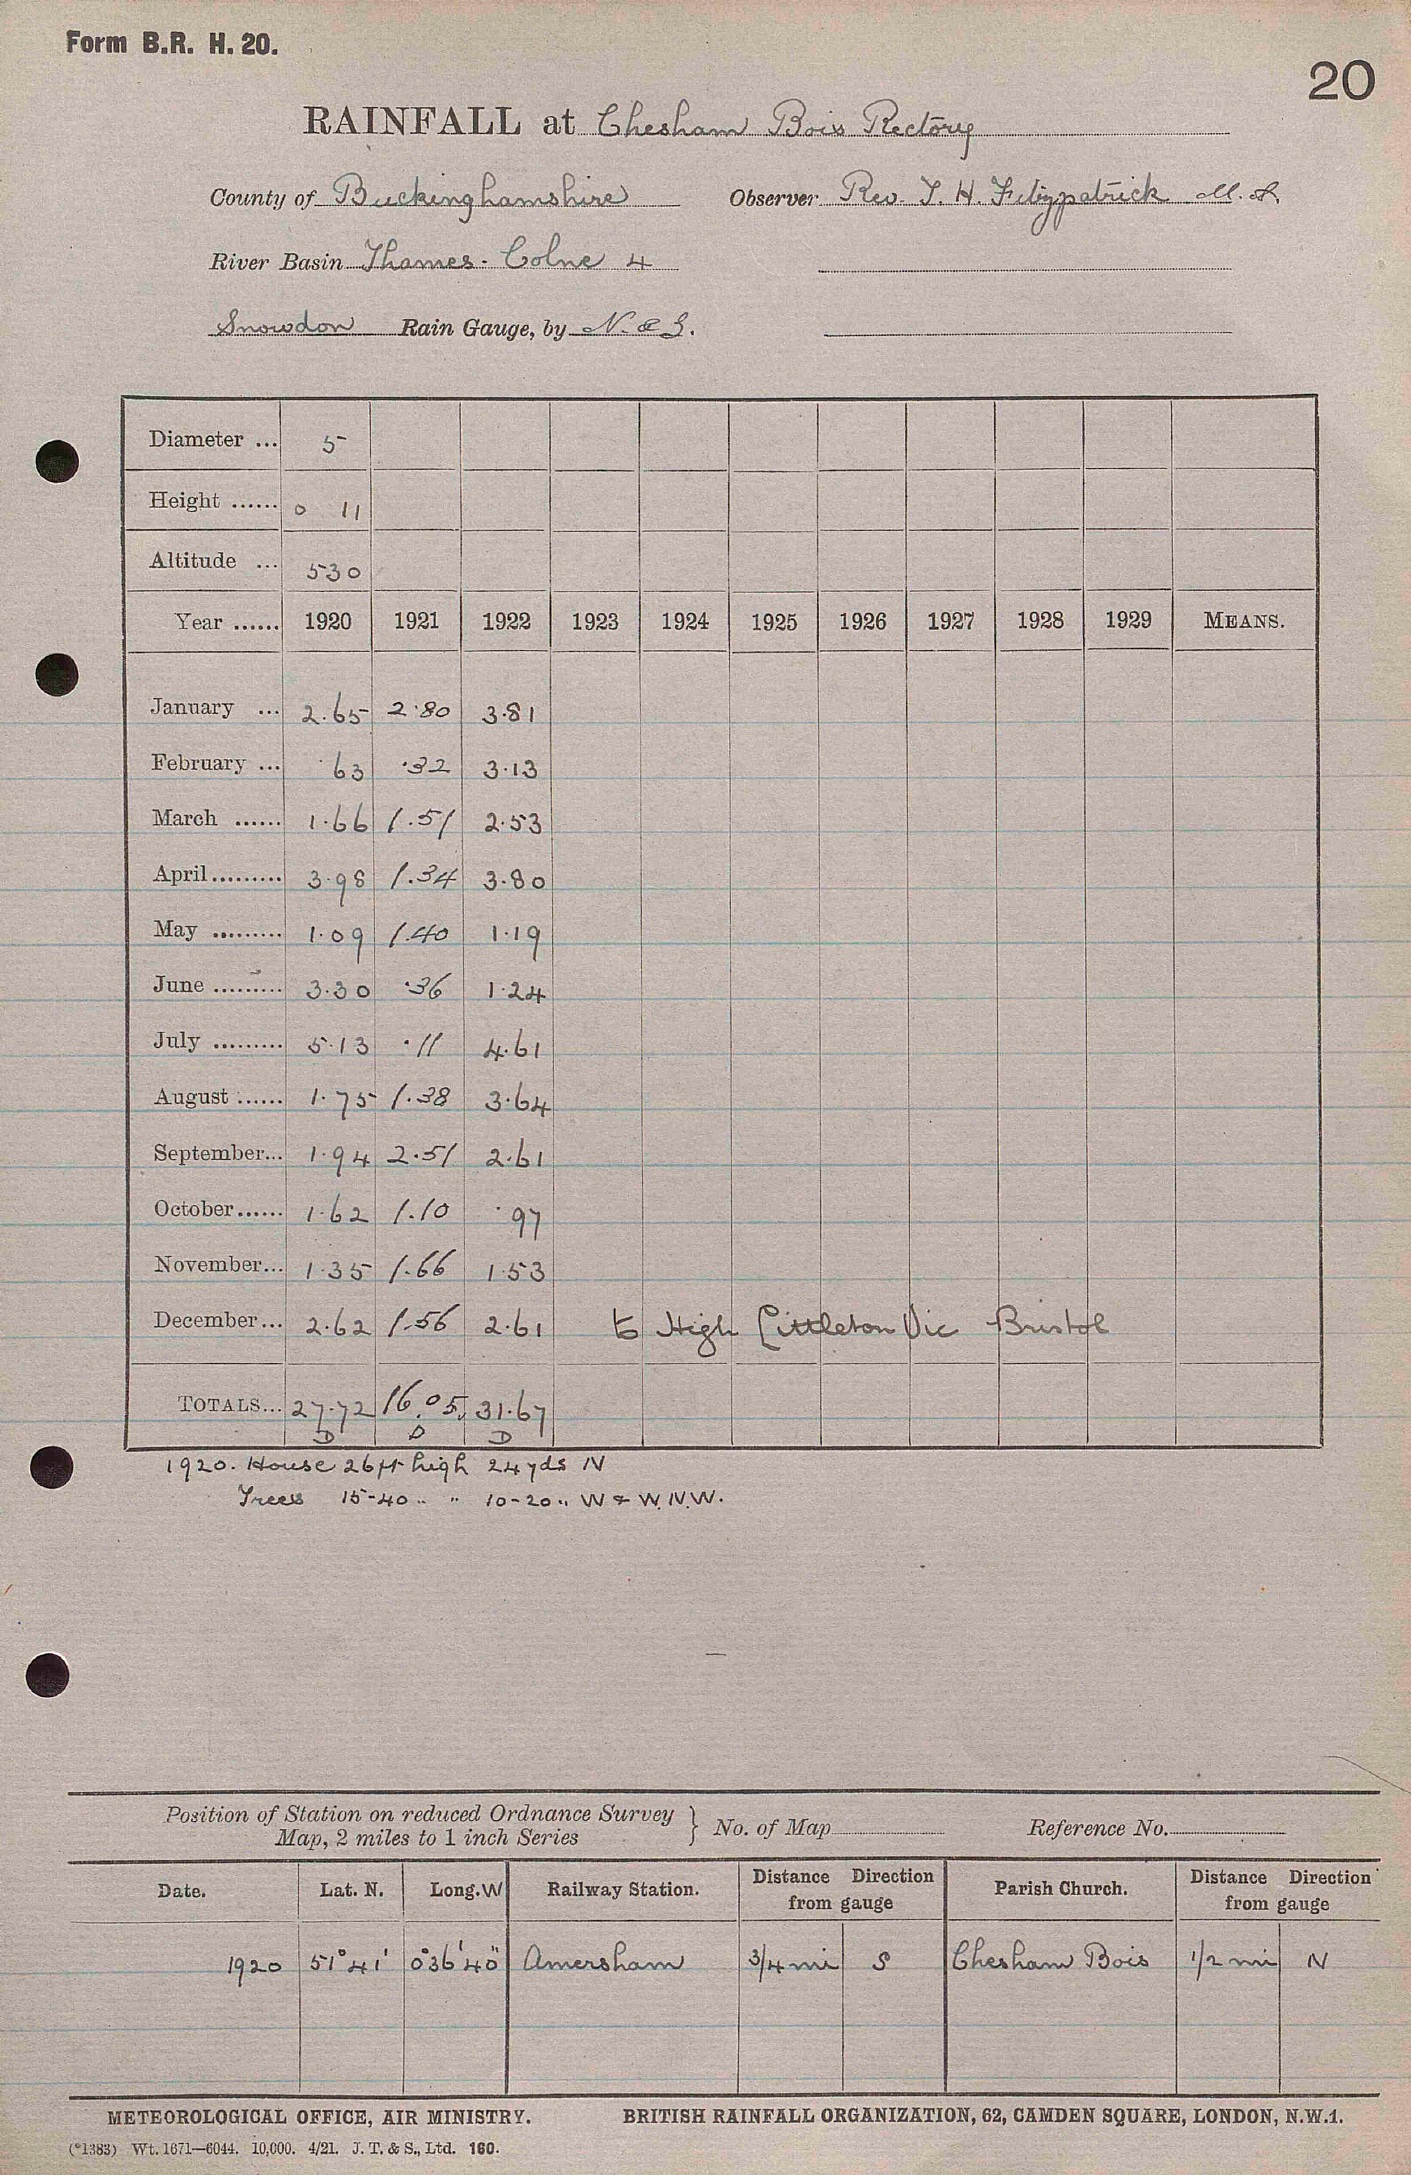 Form B.R. H. 20.
20
RAINFALL at Chesham Bois Rectory
County of Buckinghamshire Observer Rev. T. H. Fitzpatrick M.A
River Basin Thames. Colne 4
Snowdon Rain Gauge, by N. & Z.
Diameter ... 5
Height ...... 0 11
Altitude ... 530
Year ...... 1920 1921 1922 1923 1924 1925 1926 1927 1928 1929 MEANS.
January ... 2.65 2.80 3.81
February ... .63 .32 3.13
March ...... 1.66 1.51 2.53
April ......... 3.98 1.34 3.80
May ......... 1.09 1.40 1.19
June ......... 3.30 .36 1.24
July ......... 5.13 .11 4.61
August ...... 1.75 1.38 3.64
September... 1.94 2.51 2.61
October...... 1.62 1.10 .97
November... 1.35 1.66 1.53
December... 2.62 1.56 2.61 to High Littleton Vic Bristol
TOTALS... 27.72 16.05 31.67
D D D
1920. House 26ft high 24yds N
Trees 15-40 " " 10-20 " W & W.N.W.
Position of Station on reduced Ordnance Survey
Map, 2 miles to 1 inch Series } No. of Map Reference No.
Date. Lat. N. Long. W Railway Station. Distance Direction from gauge Parish Church. Distance Direction from gauge
1920 51° 41' 0° 36' 40" Amersham 3/4 mi S Chesham Bois 1/2 mi N
METEOROLOGICAL OFFICE, AIR MINISTRY. BRITISH RAINFALL ORGANIZATION, 62, CAMDEN SQUARE, LONDON, N.W.1.
(*1383) Wt. 1671—6044. 10,000. 4/21. J. T. & S., Ltd. 160.